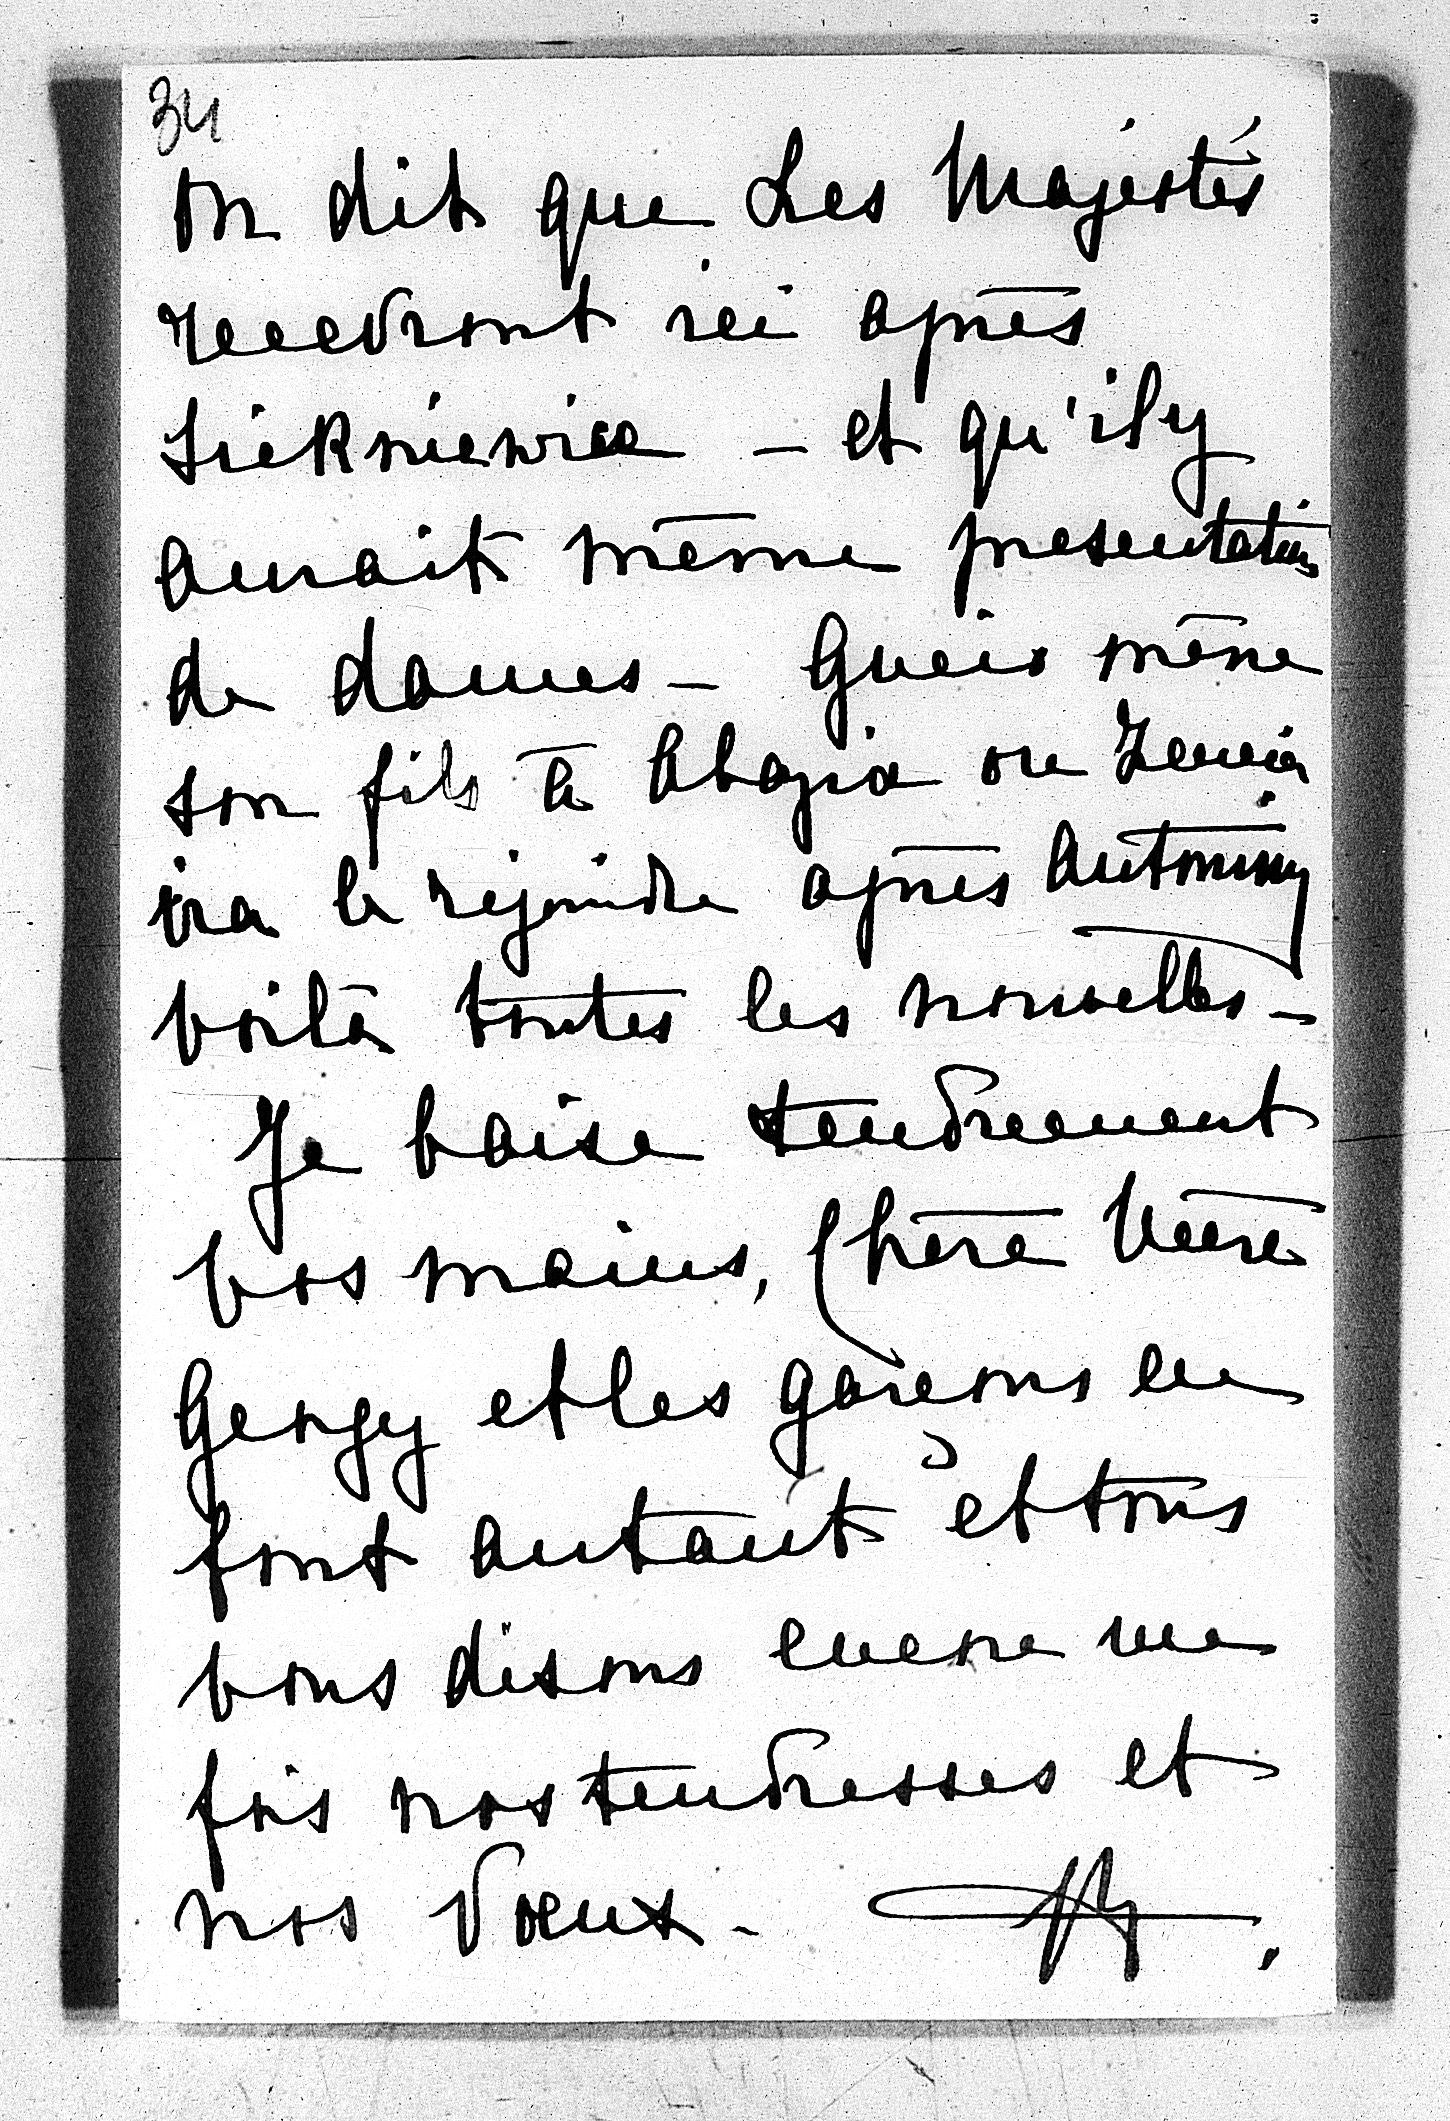 34
On dit que Les Majestés
recevront ici après
Skierniewice – et qu'il y
aurait même presentations
de dames – Gueir mène
son fils à Abazia ou Xenia
ira le rejoindre après Antoniny
voilà toutes les nouvelles –
Je baise tendrement
vos mains, Chère Mère
Georgy et les garcons en
font autant et tous
vous disons encore une
fois nos tendresses et
nos Vœux –